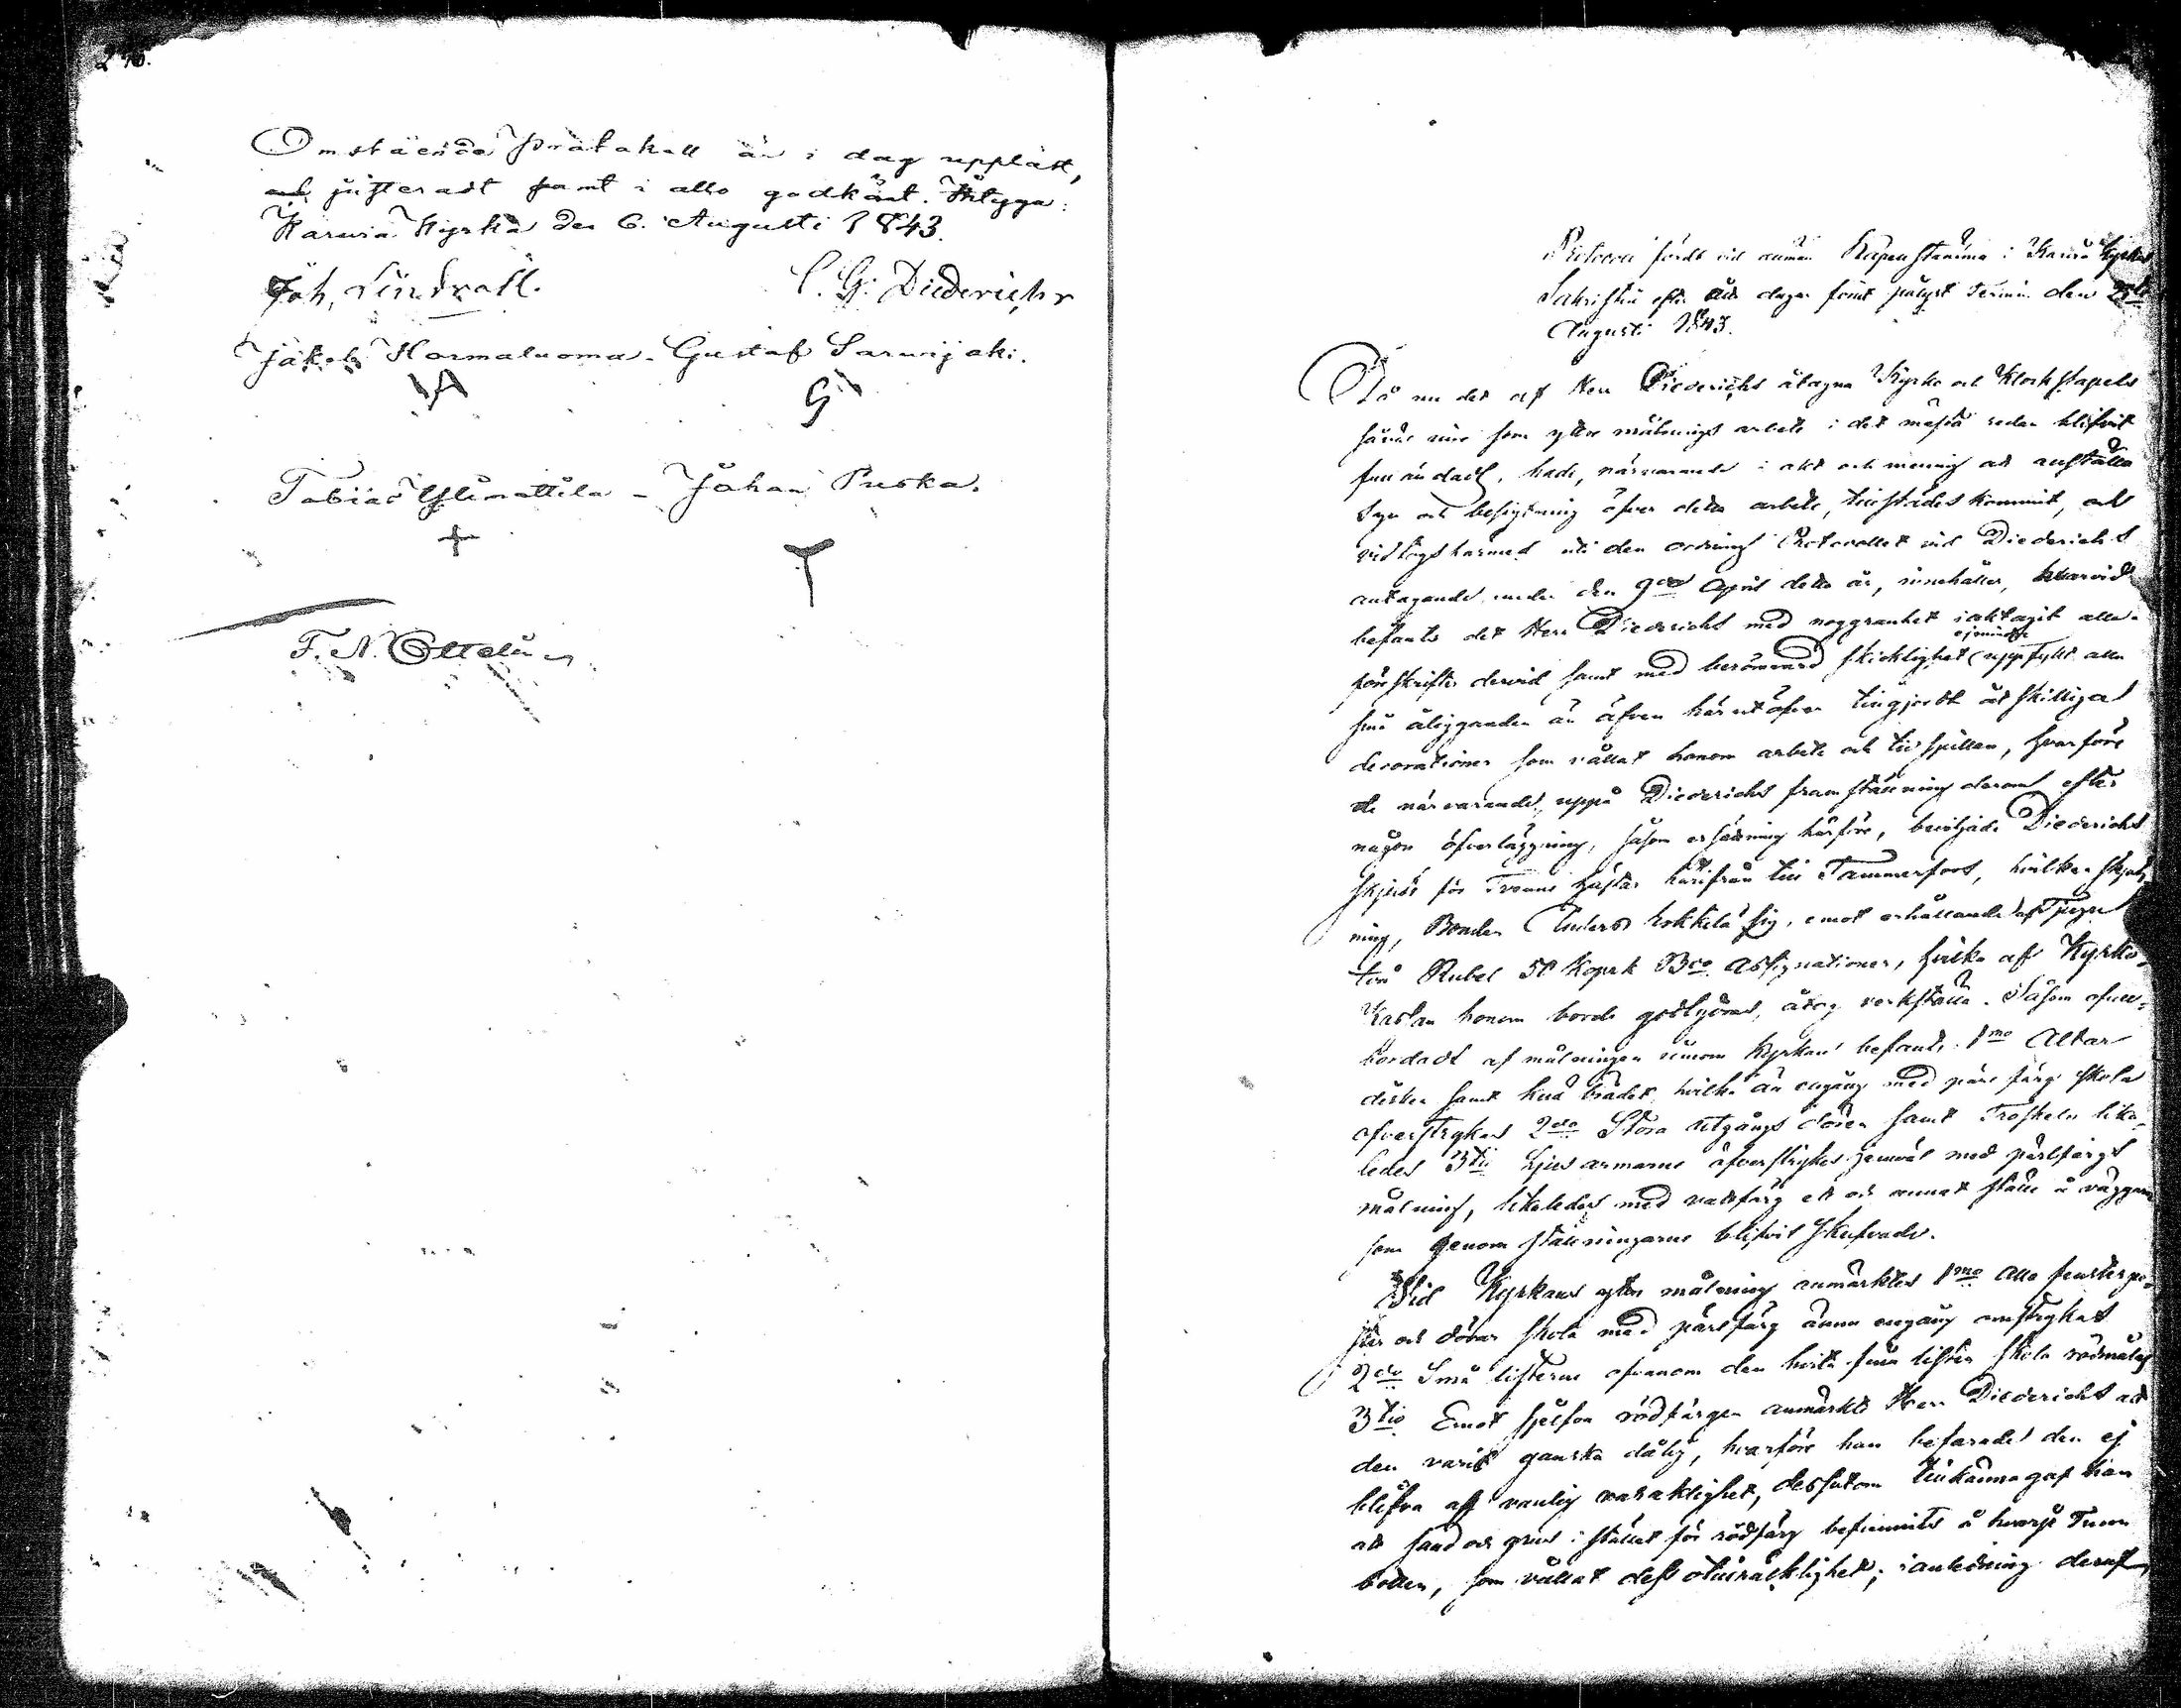 240.
Omstäende Pråtakoll är i dag uppläst,
och justeradt samt i allo godkänt. Betyga:
Karvia Kyrka den 6. Augusti 1843.
Joh, Lindvall. C. G. Diederichs
Jakob Kormaluoma. Gustaf Sarvijaki.
A G
Tobias Ylimattila - Johan Puska.
F. N. Ottelin
Protocoll fördt vid allmän Kapellstämma i Karvia Kyrkas
Sakristia efter åtta dagar förut pålyst Termin den
Augusti 1843.
Då nu det af Herr Diederichs åtagna Kyrko och Klockstapels
såväl inre som yttre målnings arbete i det mesta redan blifvit
fulländadt, hade, närvarande i akt och mening att anställa
Syn och besigtning öfver detta arbete, tillstädes kommit, och
vidtogs härmed uti den ordning Protocollet vid Diederichs
antagande under den 9de April detta år, innehåller, hvarvid
befants det Herr Diederichs med noggranhet iakttagit alla
föreskrifter dervid samt med berömvärd skicklighet ej mindre uppfyllt alla
sina åligganden än äfven härutöfver tillgjordt åtskilliga
decorationer som vållat honom arbete och tidspillan, hvarföre
de närvarande, uppå Diederichs framställning derom efter
någon öfverläggning, såsom ersättning härföre, beviljade Diederichs
skjuts för Tvenne hästar härifrån till Tammerfors, hvilken skjuts
ning, Bonden Anders Kokkila sig, emot erhållande af Tjugu
två Rubel 50 Kopek Bco Assignationer, hvilka af Kyrko-
Kassan honom borde godtgöras, åtog verkställa. Såsom ofull-
bordadt af målningen innom Kyrkan befants 1mo Altar
disken samt knä brädet hvilka än engång med pärl färg skola
öfverstrykas 2do Stora utgångs dörren samt Tröskeln lika-
ledes 3tio Ljus armarne öfverstrykes jemväl med pärlfärgs
målning, likaledes med vattfärg ett och annat ställe å väggarne
som genom ställningarne blifvit skafvade.
Vid Kyrkans yttre målning anmärktes 1mo alla fensterpo-
ster och dörar skola med pärlfärg ännu engång omstrykas
2do Små listerne ofvanom den hvita fina listen skola rödmålas
3tio Emot sjelfva rödfärgen anmärkte Herr Diederichs att
den varit ganska dålig, hvarföre han befarade den ej
blifva af vanlig varaktighet, dessutom tillkännagaf han
att sand och grus i stället för rödfärg befunnits å hvarje Tunn
botten, som vållat dess otillräcklighet; i anledning deraf